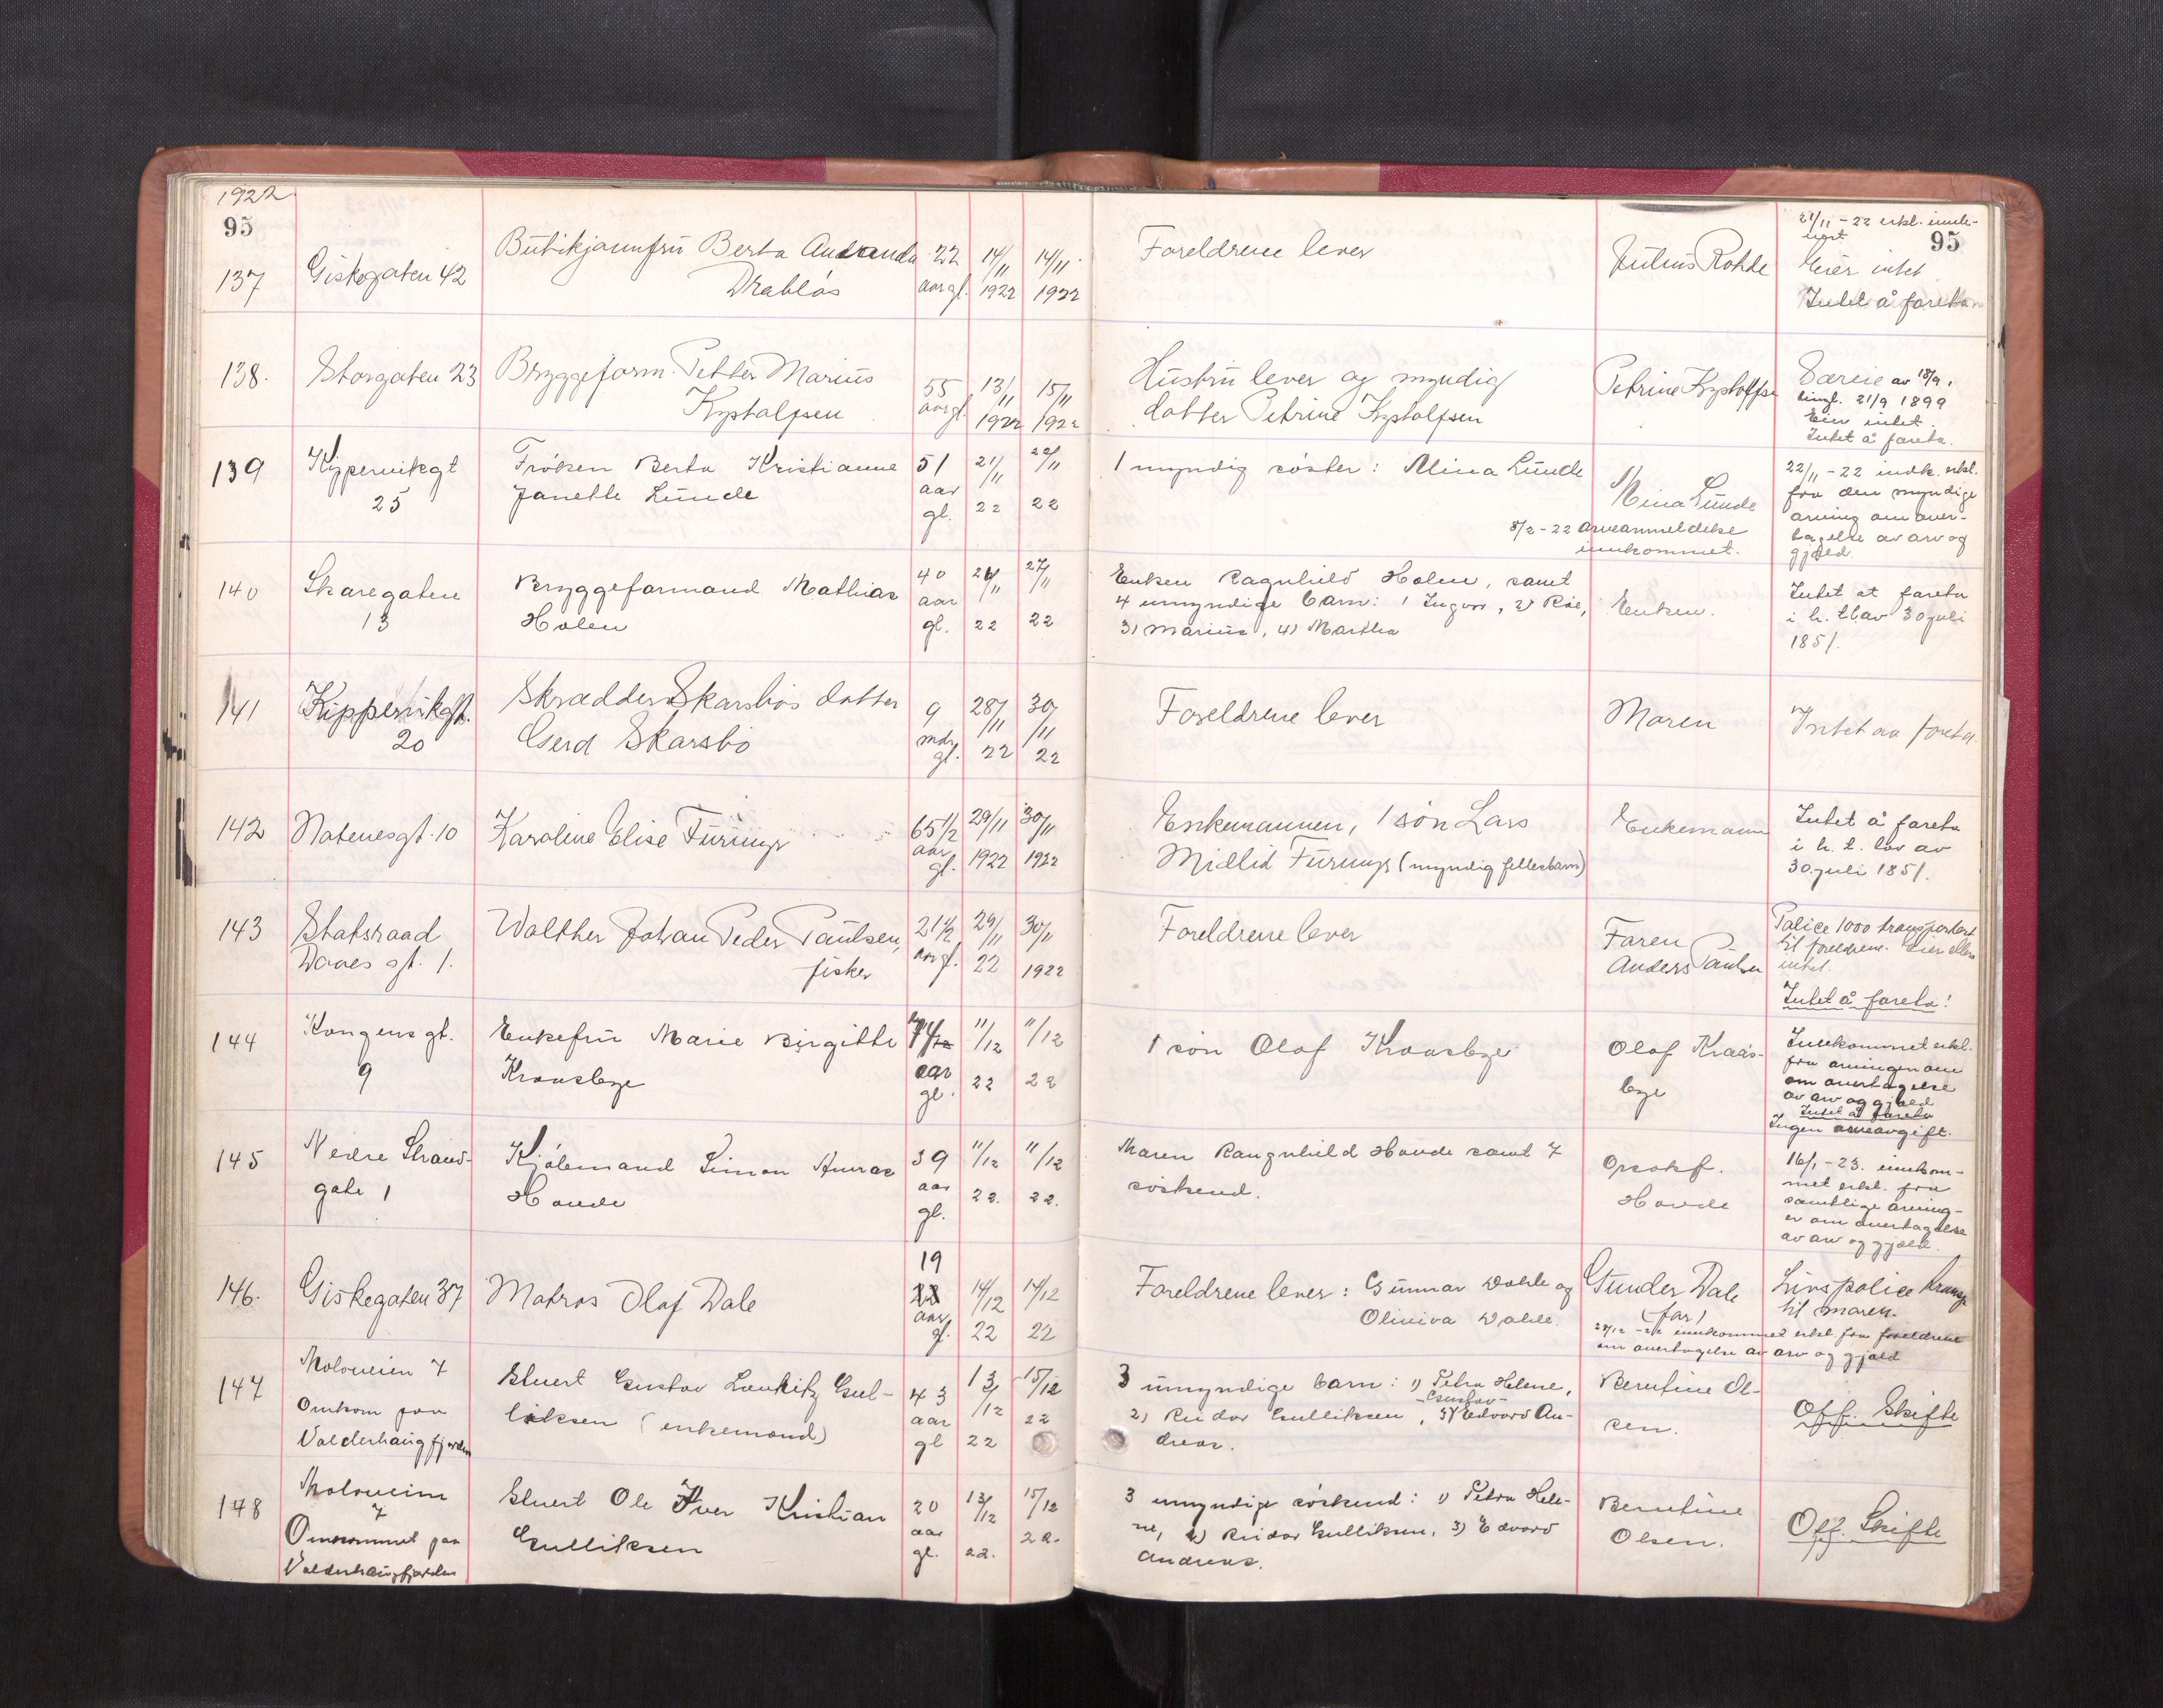 1922
95
137
Giskegaten 42
Butikjomfru Berta
Drabløs
22
aar gl.
14/11
1922
14/11
1922
Foreldrene lever
Julius Rohde
21/11 - 22 erkl. innle-
vert
95
Eier intet
Intet å foreta
138.
Storgaten 23
Bryggeform. Petter Marius
55
aar gl.
13/11
1922
15/11
1922
Hustru lever og myndig
datter Petrine
Petrine
Særeie av 18/9,
tingl. 21/9 1899
Eier intet.
Intet å foreta.
139
Kippervikgt
25
Frøken Berta Kristianne
Janette Lunde
51
aar
gl.
21/11
22
22/11
22
1 myndig søster: Mina Lunde
Mina Lunde
8/2 - 22 arveanmeldelse
innkommet.
22/11 - 22 indk. erkl.
fra den myndige
arving om over-
tagelse av arv og
gjæld.
140
Skaregaten
13
Bryggeformand Mathias
Holen
40
aar
gl.
26/11
22
27/11
22
Enken Ragnhild Holen, samt
4 umyndige barn: 1 Ingvar, 2) Roe,
3) Marius, 4) Martha
Enken.
Intet at foreta
i h. t. lov 30 juli
1851.
141
Kippervikgt.
20
Skrædder Skarsbøs datter
Gerd Skarsbø
9
mdr
gl.
28/11
22
30/11
22
Foreldrene lever
Moren
Intet aa foreta.
142
Notenesgt. 10
Karoline Elise Furmyr
65 1/2
aar
gl.
29/11
1922
30/11
1922
Enkemannen, 1 søn Lars
Midlid Furmyr (myndig fellesbarn)
Enkemann
Intet å foreta
i h. t. lov av
30. juli 1851.
143
Statsraad
Daaes gt. 1.
Walther Johan Peder Paulsen,
fisker
21 1/2
aar gl.
29/11
22
30/11
1922
Foreldrene lever
Faren
Anders Paulsen
Police 1000 transportert
til foreldrene. Eier ellers
intet.
Intet å foreta!
144
Kongens gt.
9
Enkefru Marie Birgitte
Kraasbye
aar
gl.
11/12
22
11/12
22
1 søn Olaf Kraasbye
Olaf Kraas-
bye
Innkommet erkl.
fra arvingen om
om overtagelse
av arv og gjæld
Intet å foreta
Ingen arveavgift.
145
Nedre Strand-
gate 1
Kjølemand Simon
Hovde
39
aar
gl.
11/12
22.
11/12
22.
Maren Raugnhild Hovde samt 7
søskend.
Hovde
16/1 - 23. innkom-
met erkl. fra
samtlige arving-
er om overtagelse
av arv og gjæld.
146.
Giskegaten 37
Matros Olaf Dale
19
22
aar
gl.
14/12
22
14/12
22
Foreldrene lever: Gunnar Dahle og
Oliviva Dahle.
Gunder Dale
(far)
Livspolice transp.
til moren.
28/12 - 22 innkommet erkl. fra foreldrene
om overtagelse av arv og gjæld
147
Moloveien 7
Omkom paa
Valderhaugfjorden
Stuert Gustav Lauritz Gul-
liksen (enkemand)
43
aar
gl
13/12
22
15/12
22
3 umyndige barn: 1) Petra Helene,
2) Reidar Gulliksen, 3) Edvard An-
Gustav
dreas.
Berntine Ol-
sen.
Off. Skifte
148
Moloveien
7
Omkommet paa
Valderhaugfjorden
Stuert Ole Iver Kristian
Gulliksen
20
aar
gl.
13/12
22.
15/12
22.
3 umyndige søskend: 1) Petra Hele-
ne, 2) Reidar Gulliksen, 3) Edvard
Andreas.
Berntine
Olsen.
Off. Skifte